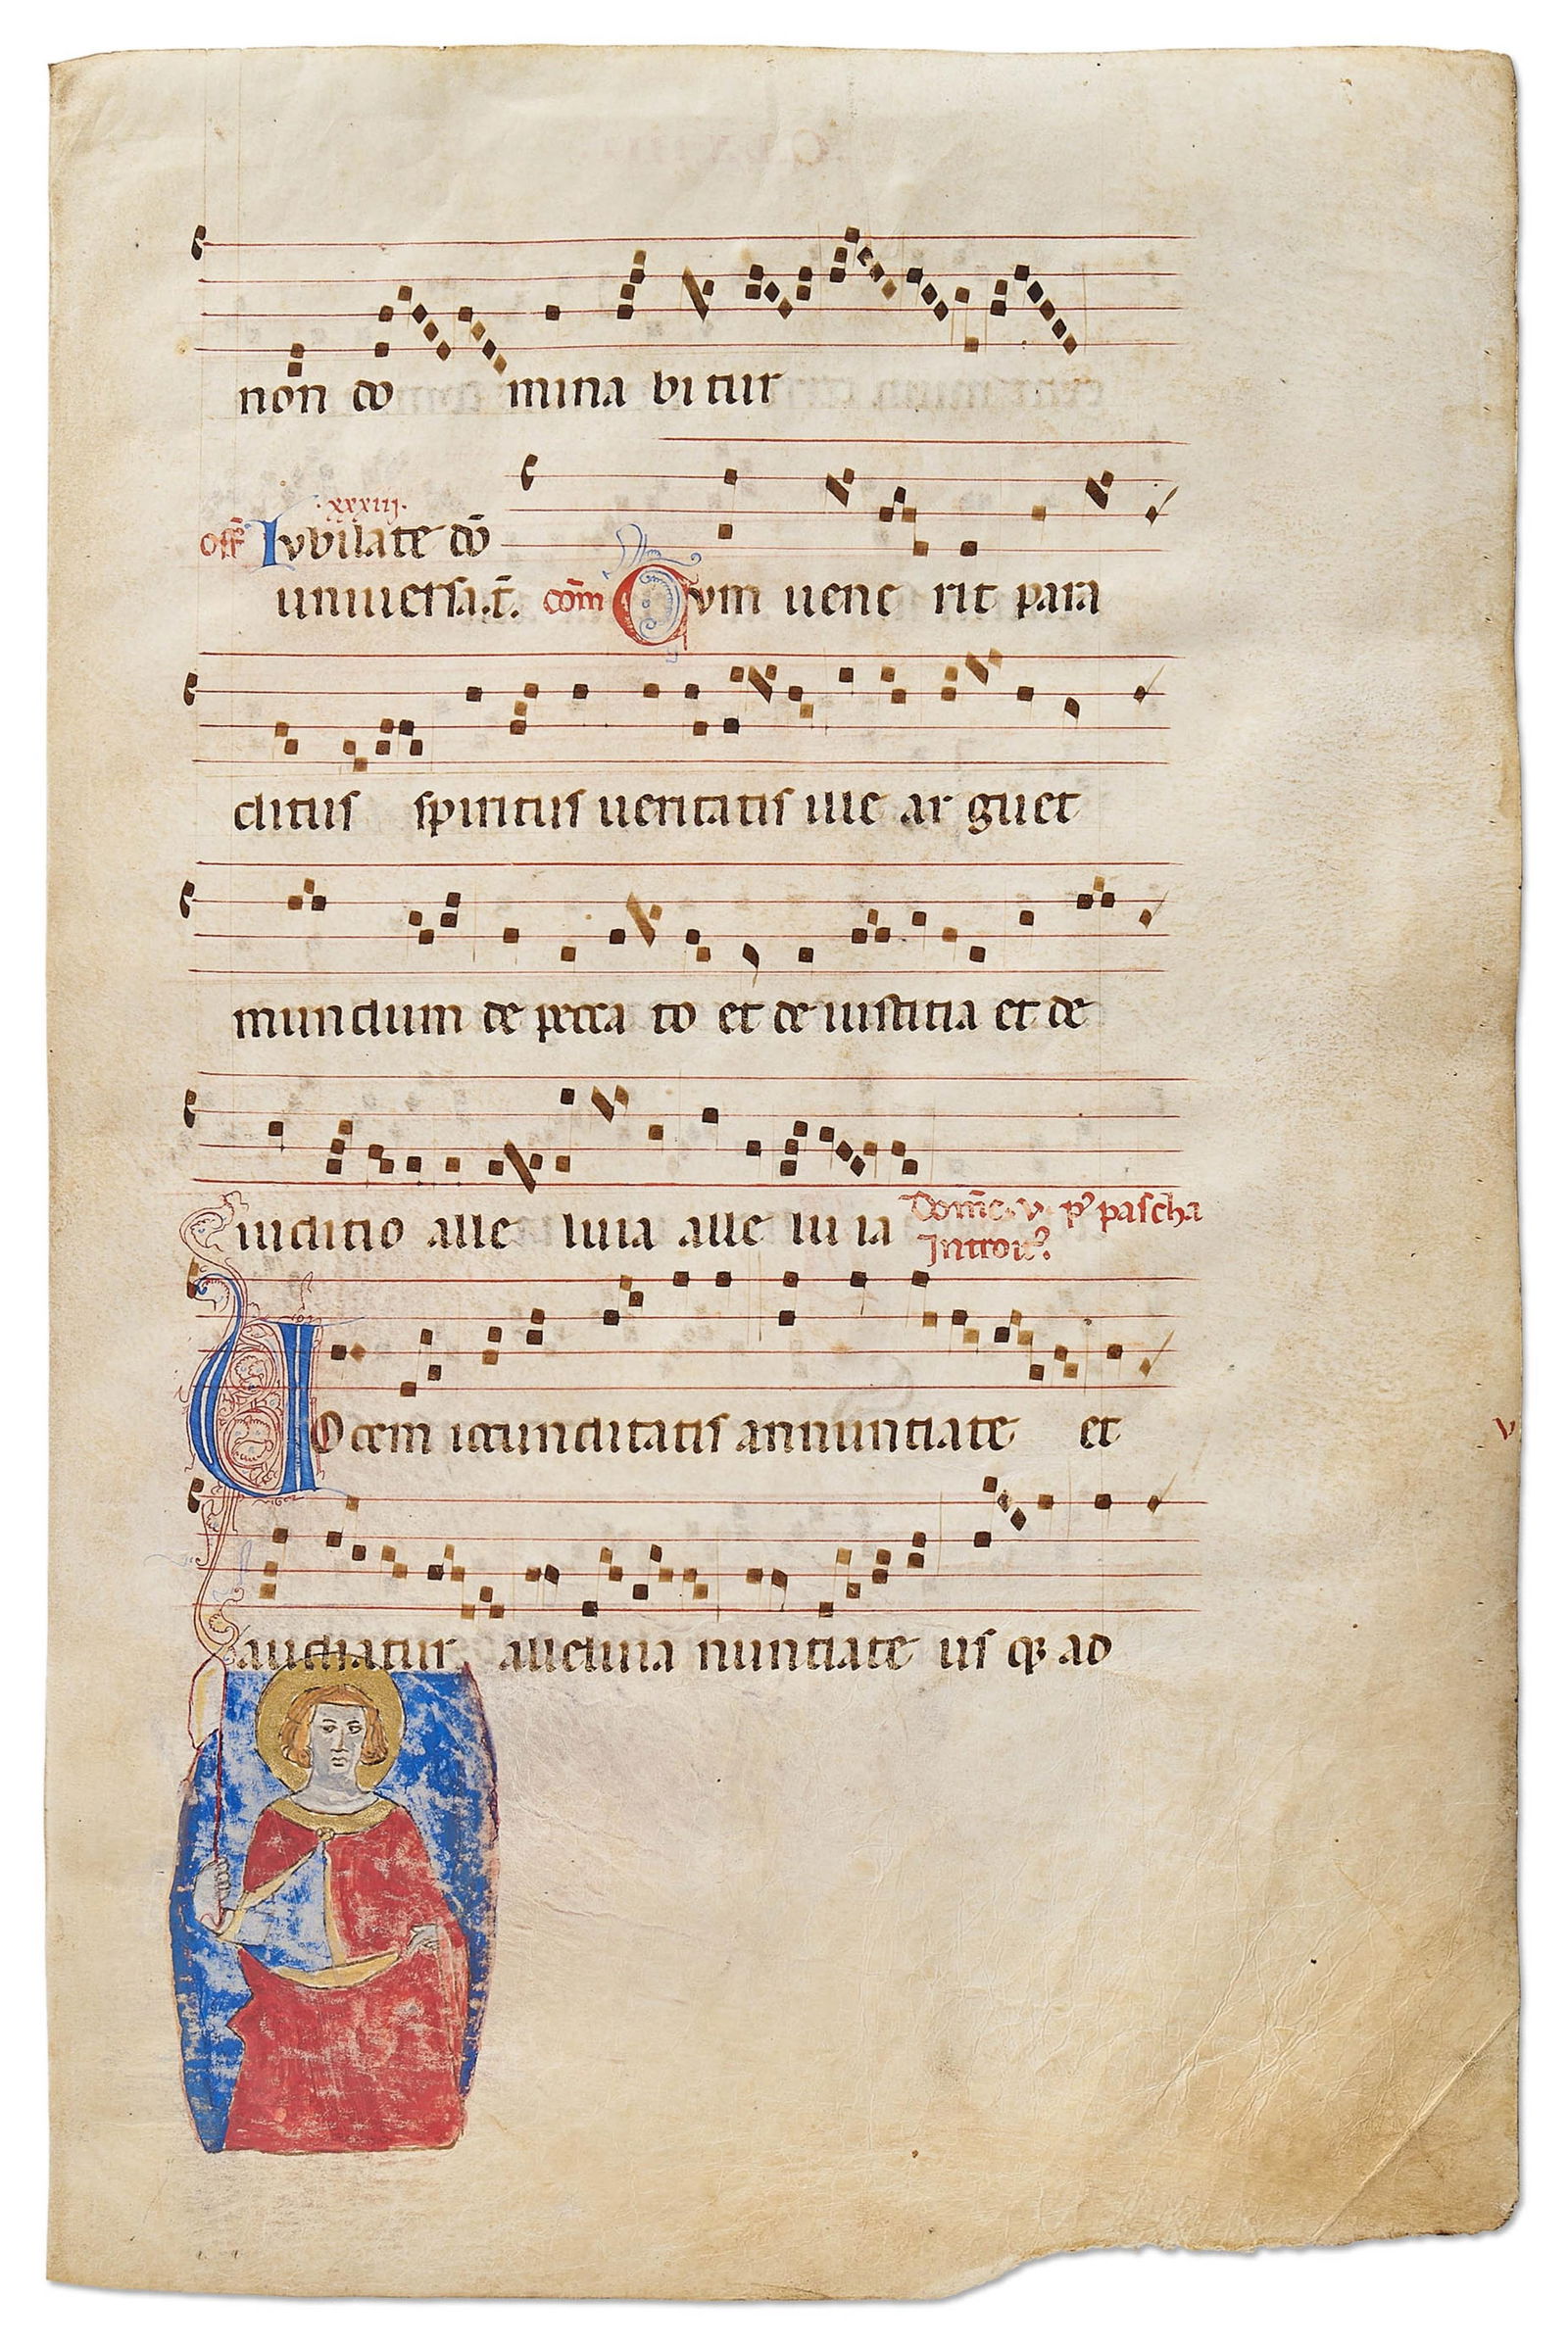 non do mina bi tur
.xxxiij.
off̄ Iubilate dō
uniuersa.t̄. com̄ Cum uene rit para
clitus spiritus ueritatis ille ar guet
mundum de pecca to et de iustitia et de
iudicio alle luia alle lu ia Dom̄c. v. p' pascha
Introit'.
Uocem iocunditatis annuntiate et
audiatur alleluia nuntiate us qȝ ad
v